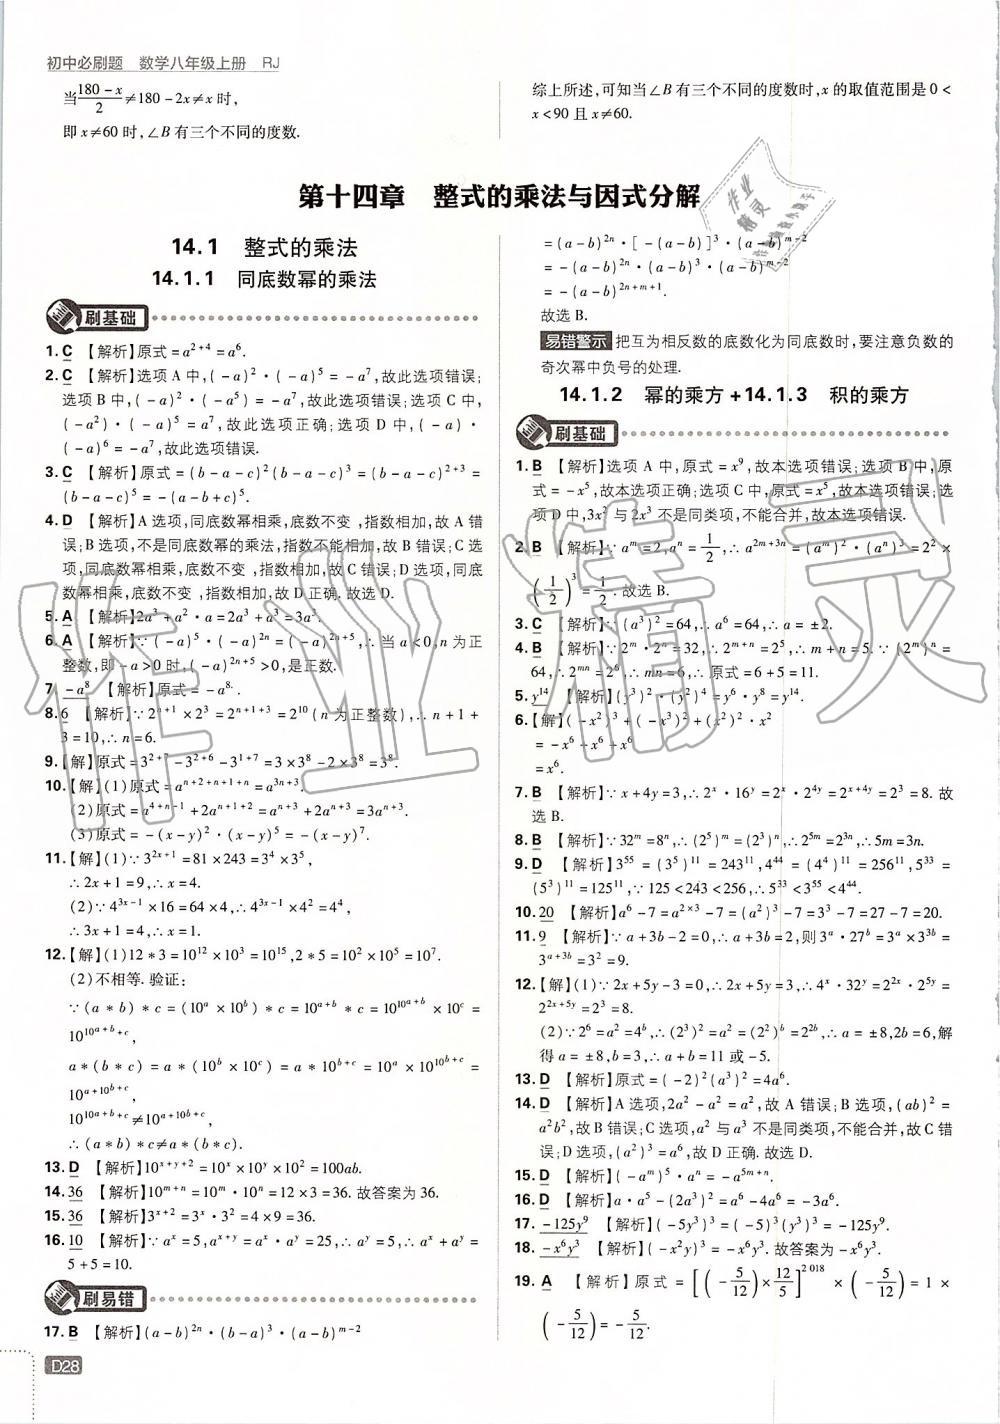 初中必刷题 数学八年级上册 RJ
当(180-x)/2≠180-2x≠x时,
即x≠60时,∠B有三个不同的度数.
综上所述,可知当∠B有三个不同的度数时,x的取值范围是0<
x<90且x≠60.
第十四章 整式的乘法与因式分解
14.1 整式的乘法
14.1.1 同底数幂的乘法
刷基础
1. C 【解析】原式=a²⁺⁴=a⁶.
2. C 【解析】选项A中,(-a)²·(-a)⁵=-a⁷,故此选项错误;
选项B中,(-a)²·(-a⁵)=-a⁷,故此选项错误;选项C中,
(-a²)·(-a)⁵=a⁷,故此选项正确;选项D中,(-a)·
(-a)⁶=-a⁷,故此选项错误.
3. C 【解析】原式=(b-a-c)²(b-a-c)³=(b-a-c)²⁺³=
(b-a-c)⁵=-(a-b+c)⁵.
4. D 【解析】A选项,同底数幂相乘,底数不变,指数相加,故A错
误;B选项,不是同底数幂的乘法,指数不能相加,故B错误;C选
项,同底数幂相乘,底数不变,指数相加,故C错误;D选项,同底
数幂相乘,底数不变,指数相加,故D正确.故选D.
5. A 【解析】2a³+a²·a=2a³+a³=3a³.
6. A 【解析】∵(-a)⁵·(-a)²ⁿ=(-a)²ⁿ⁺⁵,∴当a<0,n为正
整数,即-a>0时,(-a)²ⁿ⁺⁵>0,是正数.
7. -a⁸ 【解析】原式=-a⁸.
8. 6 【解析】∵2ⁿ⁺¹×2³=2ⁿ⁺¹⁺³=2¹⁰(n为正整数),∴n+1+
3=10,∴n=6.
9. 【解】原式=3²⁺⁷-3²⁺⁶-3¹⁺⁷=3×3⁸-2×3⁸=3⁸.
10. 【解】(1)原式=aⁿ⁺²⁺ⁿ⁺¹⁺ⁿ=a³ⁿ⁺³.
(2)原式=a⁴⁺ⁿ⁻¹+2aⁿ⁺¹⁺²=aⁿ⁺³+2aⁿ⁺³=3aⁿ⁺³.
(3)原式=-(x-y)²·(x-y)⁵=-(x-y)⁷.
11. 【解】(1)∵3²ˣ⁺¹=81×243=3⁴×3⁵,
∴2x+1=9,∴x=4.
(2)∵4³ˣ⁻¹×16=64×4,∴4³ˣ⁻¹×4²=4⁴,
∴3x+1=4,∴x=1.
12. 【解】(1)12*3=10¹²×10³=10¹⁵,2*5=10²×10⁵=10⁷.
(2)不相等.验证:
∵(a*b)*c=(10ᵃ×10ᵇ)*c=10ᵃ⁺ᵇ*c=10^(10^(a+b))×10ᶜ=
10^(10^(a+b)+c),
a*(b*c)=a*(10ᵇ×10ᶜ)=a*10ᵇ⁺ᶜ=10ᵃ×10^(10^(b+c))=
10^(a+10^(b+c)),
10^(10^(a+b)+c)≠10^(a+10^(b+c)),
∴(a*b)*c≠a*(b*c).
13. D 【解析】10ˣ⁺ʸ⁺²=10ˣ×10ʸ×10²=100ab.
14. 36 【解析】10ᵐ⁺ⁿ=10ᵐ·10ⁿ=12×3=36.故答案为36.
15. 36 【解析】3ˣ⁺²=3ˣ·3²=4×9=36.
16. 10 【解析】∵aˣ=5,aˣ⁺ʸ=aˣ·aʸ=25,∴aʸ=5,∴aˣ+aʸ=
5+5=10.
刷易错
17. B 【解析】(a-b)²ⁿ·(b-a)³·(a-b)ᵐ⁻²
D28
=(a-b)²ⁿ·[-(a-b)]³·(a-b)ᵐ⁻²
=-(a-b)²ⁿ⁺³⁺ᵐ⁻²
=-(a-b)²ⁿ⁺ᵐ⁺¹.
故选B.
易错警示 把互为相反数的底数化为同底数时,要注意负数的
奇次幂中负号的处理.
14.1.2 幂的乘方+14.1.3 积的乘方
刷基础
1. B 【解析】选项A中,原式=x⁹,故本选项错误;选项B中,原
式=-x⁵,故本选项正确;选项C中,原式=x⁵,故本选项错误;选
项D中,3x²与2x³不是同类项,不能合并,故本选项错误.
2. B 【解析】∵aᵐ=2,aⁿ=1/2,∴a²ᵐ⁺³ⁿ=(aᵐ)²·(aⁿ)³=2²×
(1/2)³=1/2.故选B.
3. C 【解析】∵(a³)²=64,∴a⁶=64,∴a=±2.
4. B 【解析】∵2ᵐ·2ⁿ=32,∴2ᵐ⁺ⁿ=2⁵,∴m+n=5.∵(2ᵐ)ⁿ=
64,∴2ᵐⁿ=2⁶,∴mn=6,∴原式=6+5=11.
5. y¹⁴ 【解析】(y³)²·(y²)⁴=y⁶·y⁸=y¹⁴.
6. 【解】(-x²)³+(-x³)²+(x²)²·x²
=-x⁶+x⁶+x⁶
=x⁶.
7. B 【解析】∵x+4y=3,∴2ˣ·16ʸ=2ˣ·2⁴ʸ=2ˣ⁺⁴ʸ=2³=8.故
选B.
8. B 【解析】∵32ᵐ=8ⁿ,∴(2⁵)ᵐ=(2³)ⁿ,∴2⁵ᵐ=2³ⁿ,∴5m=3n.
9. D 【解析】3⁵⁵=(3⁵)¹¹=243¹¹,4⁴⁴=(4⁴)¹¹=256¹¹,5³³=
(5³)¹¹=125¹¹,∵125<243<256,∴5³³<3⁵⁵<4⁴⁴.
10. 20 【解析】a⁶-7=a²ˣ³-7=(a²)³-7=3³-7=27-7=20.
11. 9 【解析】∵a+3b-2=0,∴a+3b=2,则3ᵃ·27ᵇ=3ᵃ×3³ᵇ=
3ᵃ⁺³ᵇ=3²=9.
12. 【解】(1)∵2x+5y-3=0,∴2x+5y=3,∴4ˣ·32ʸ=2²ˣ·2⁵ʸ=
2²ˣ⁺⁵ʸ=2³=8.
(2)∵2⁶=a²=4ᵇ,∴(2³)²=a²=(2²)ᵇ=2²ᵇ,∴a=±8,2b=6,解
得a=±8,b=3,∴a+b=11或-5.
13. D 【解析】原式=(-2)²(a³)²=4a⁶.
14. D 【解析】A选项,2a²-a²=a²,故A错误;B选项,(ab)²=
a²b²,故B错误;C选项,a²与a³不是同类项,不能合并,故C错
误;D选项,(a²)³=a⁶,故D正确.故选D.
15. D 【解析】(-aᵐ)⁵·aⁿ=-a⁵ᵐ⁺ⁿ.
16. D 【解析】a·a⁵-(2a³)²=a⁶-4a⁶=-3a⁶.
17. -125y⁹ 【解析】(-5y³)³=(-5)³(y³)³=-125y⁹.
18. -x⁶y³ 【解析】(-x²y)³=-x⁶y³.故答案为-x⁶y³.
19. A 【解析】原式=[(-5/12)×12/5]²⁰¹⁸×(-5/12)=1×
(-5/12)=-5/12.
作业精灵